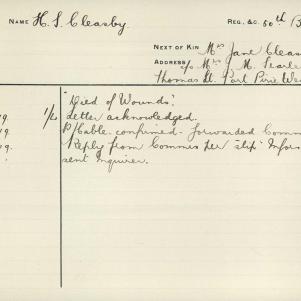 NAME H. S. Cleasby. REG. &C. 50th B
NEXT OF KIN Mrs Jane Cleas
ADDRESS c/o Mrs M. Searle
Thomas St. Port Pirie We
"Died of Wounds".
19. Letter acknowledged.
19. P/Cable. confirmed - forwarded Comm
19. Reply from Commis per "slip" Infor
sent inquirer.